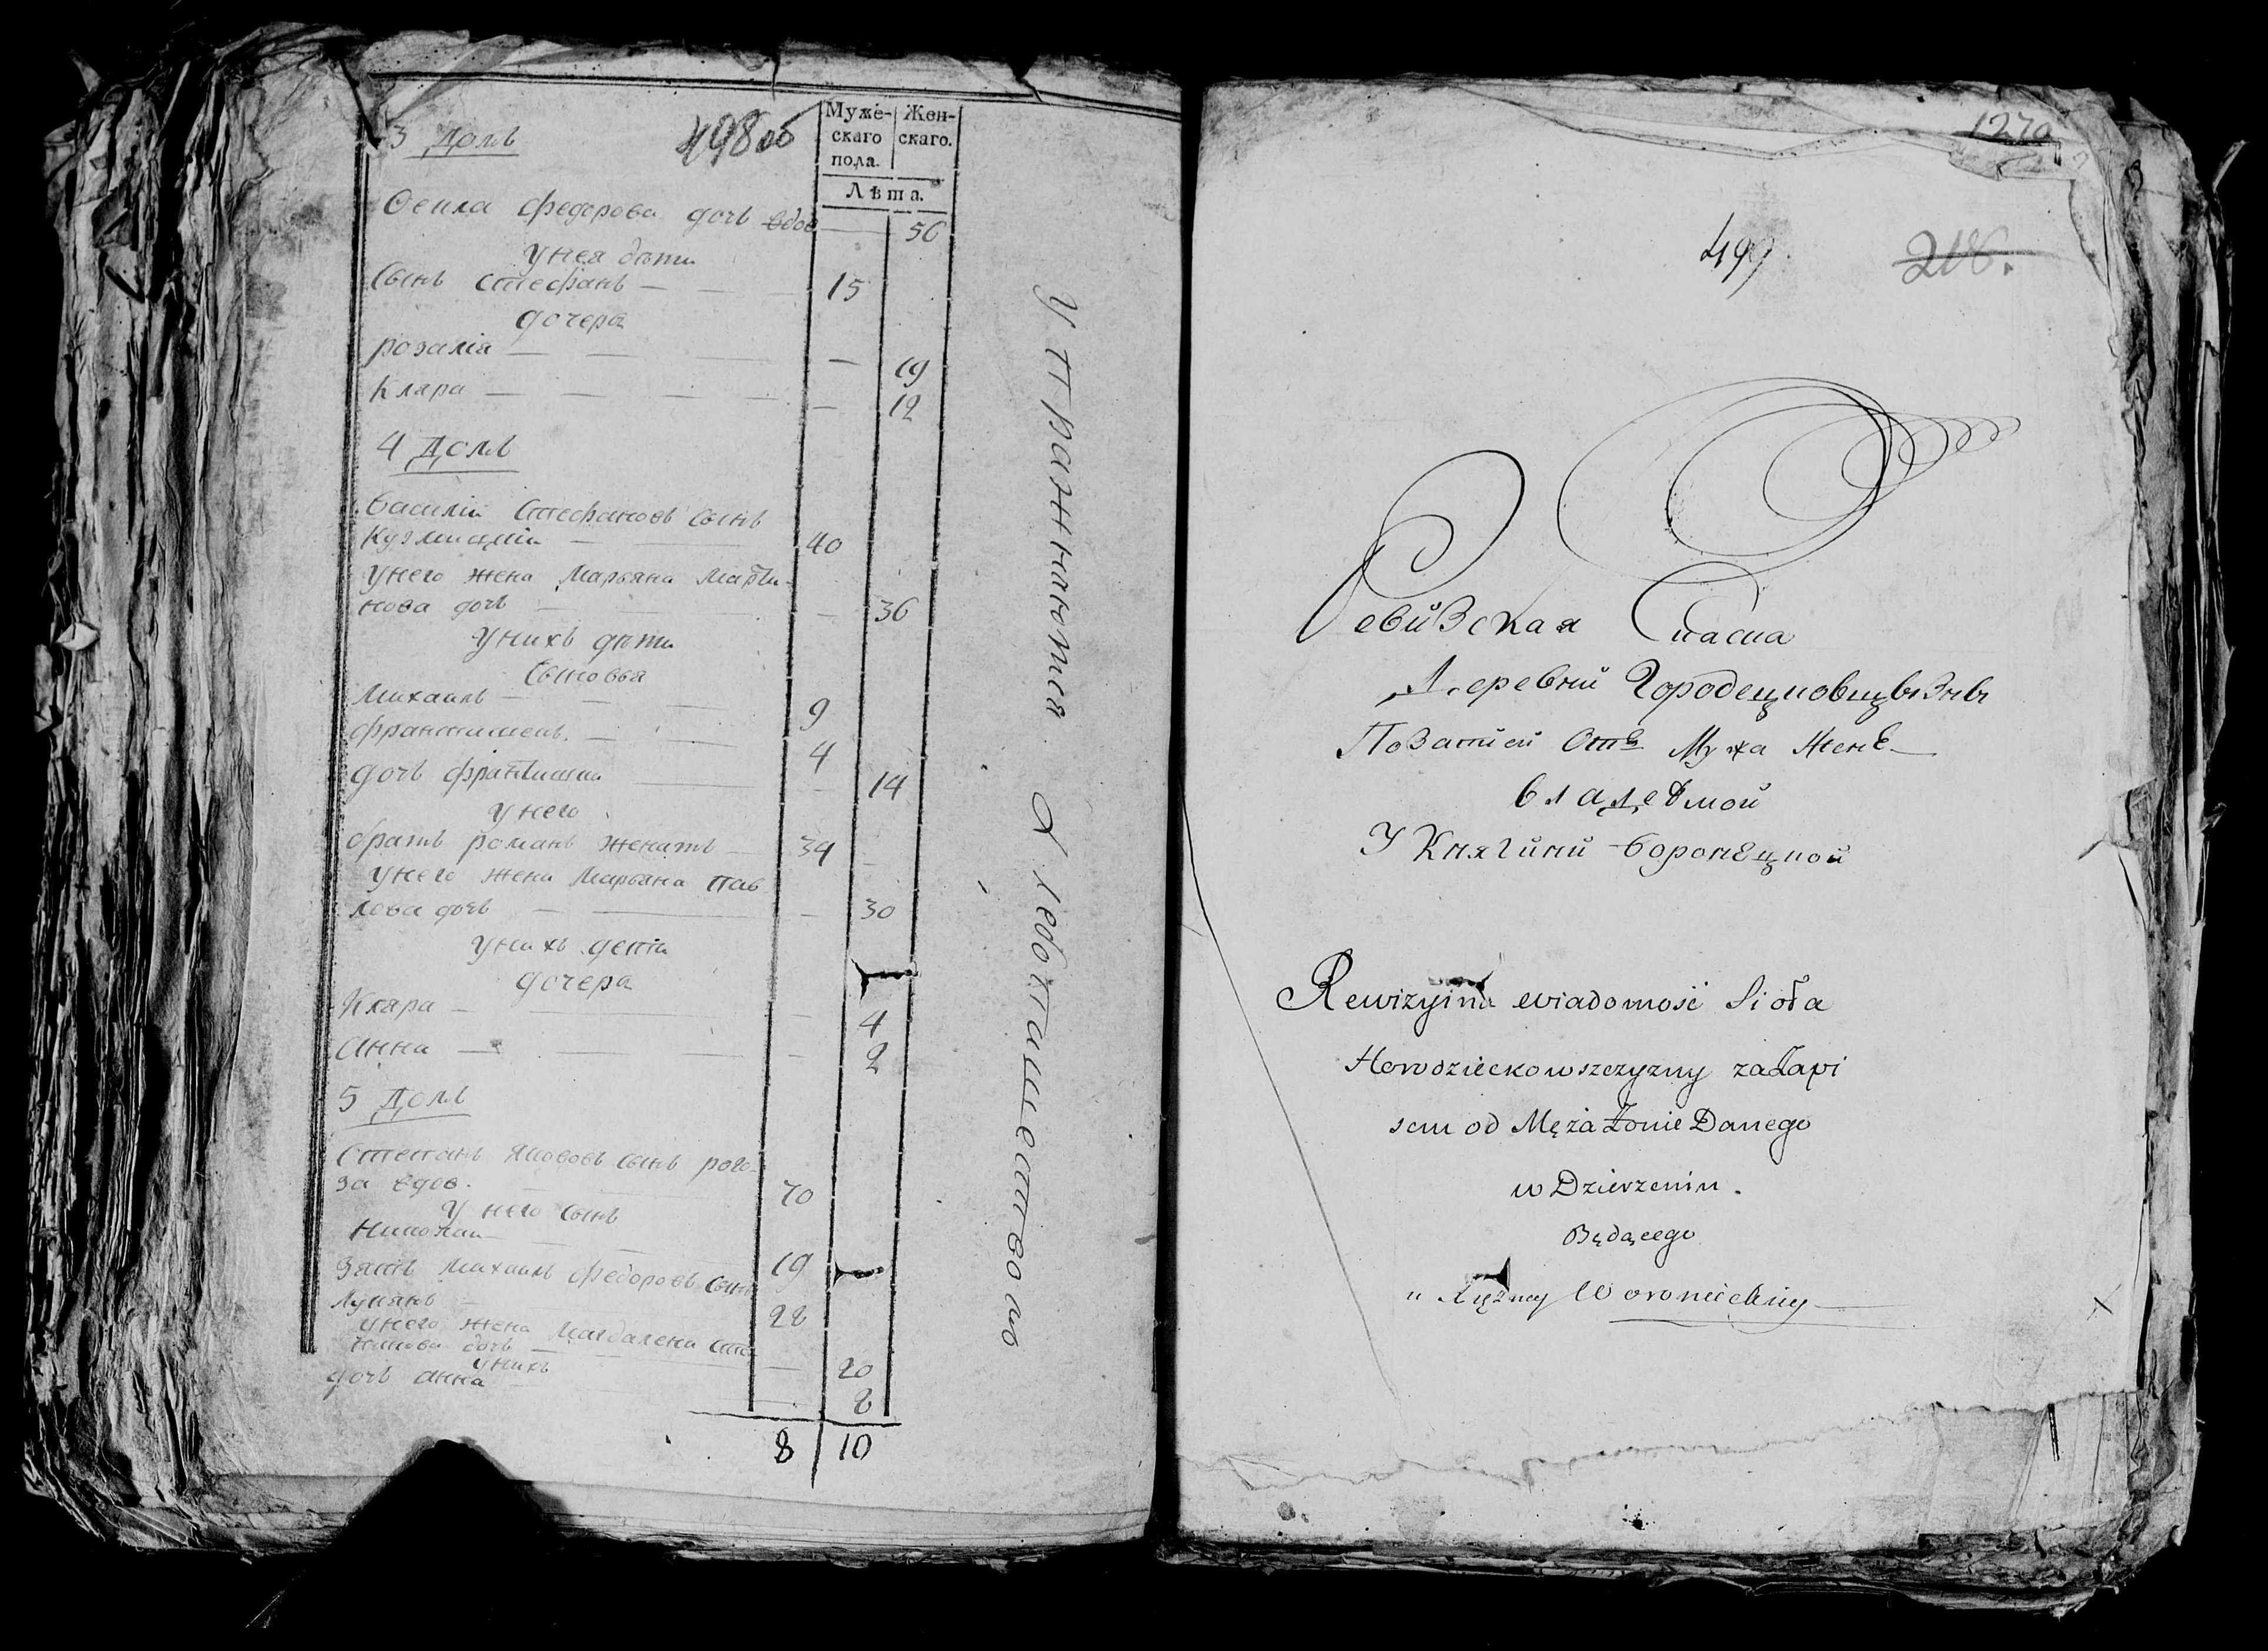 3 Домъ
498 об
Муже-
скаго
пола.
Жен-
скаго.
Лѣта.
Федорова дочь вдов — 56
У нея дѣти
Сынъ Стефанъ — — — 15
дочера
розалія — — — — 19
Кляра — — — — — 12
4 Домъ
Василій Стефановъ Сынъ
— 40
У него жена Марьяна Марти-
нова дочь — — — 36
У нихъ дѣти
Сыновья
Михаилъ — — — 9
францишекъ — — 4
дочь францишка — — 14
У него
братъ романъ женатъ — 34 —
У него жена Марьяна Пав
лова дочь — — — 30
У нихъ дети
дочера
Кляра — — — 4
Анна — — — — 2
5 Домъ
Степанъ Яковъ Сынъ рого-
за вдов. — 70
У него Сынъ
Николай — — 19
Зять Михаилъ Федоровъ Сынъ
— 22
У него жена Магдалена Сте
дочь — — 20
У нихъ
дочь Анна — — 2
8 10
У пражнаются Хлебопашествомъ
1270
499
216.
Ревизская Сказка
Деревни Городецковщызнъ
Позаписи Отъ Мужа Женѣ
владеѣмой
У Княгини Воронѣцкой
Rewizyina wiadomość Sioła
Horodzieckowszczyzny za Zapi
sem od Męża Żonie Danego
w Dzierzeniu.
Będącego
u Xiężney Woronieckiey